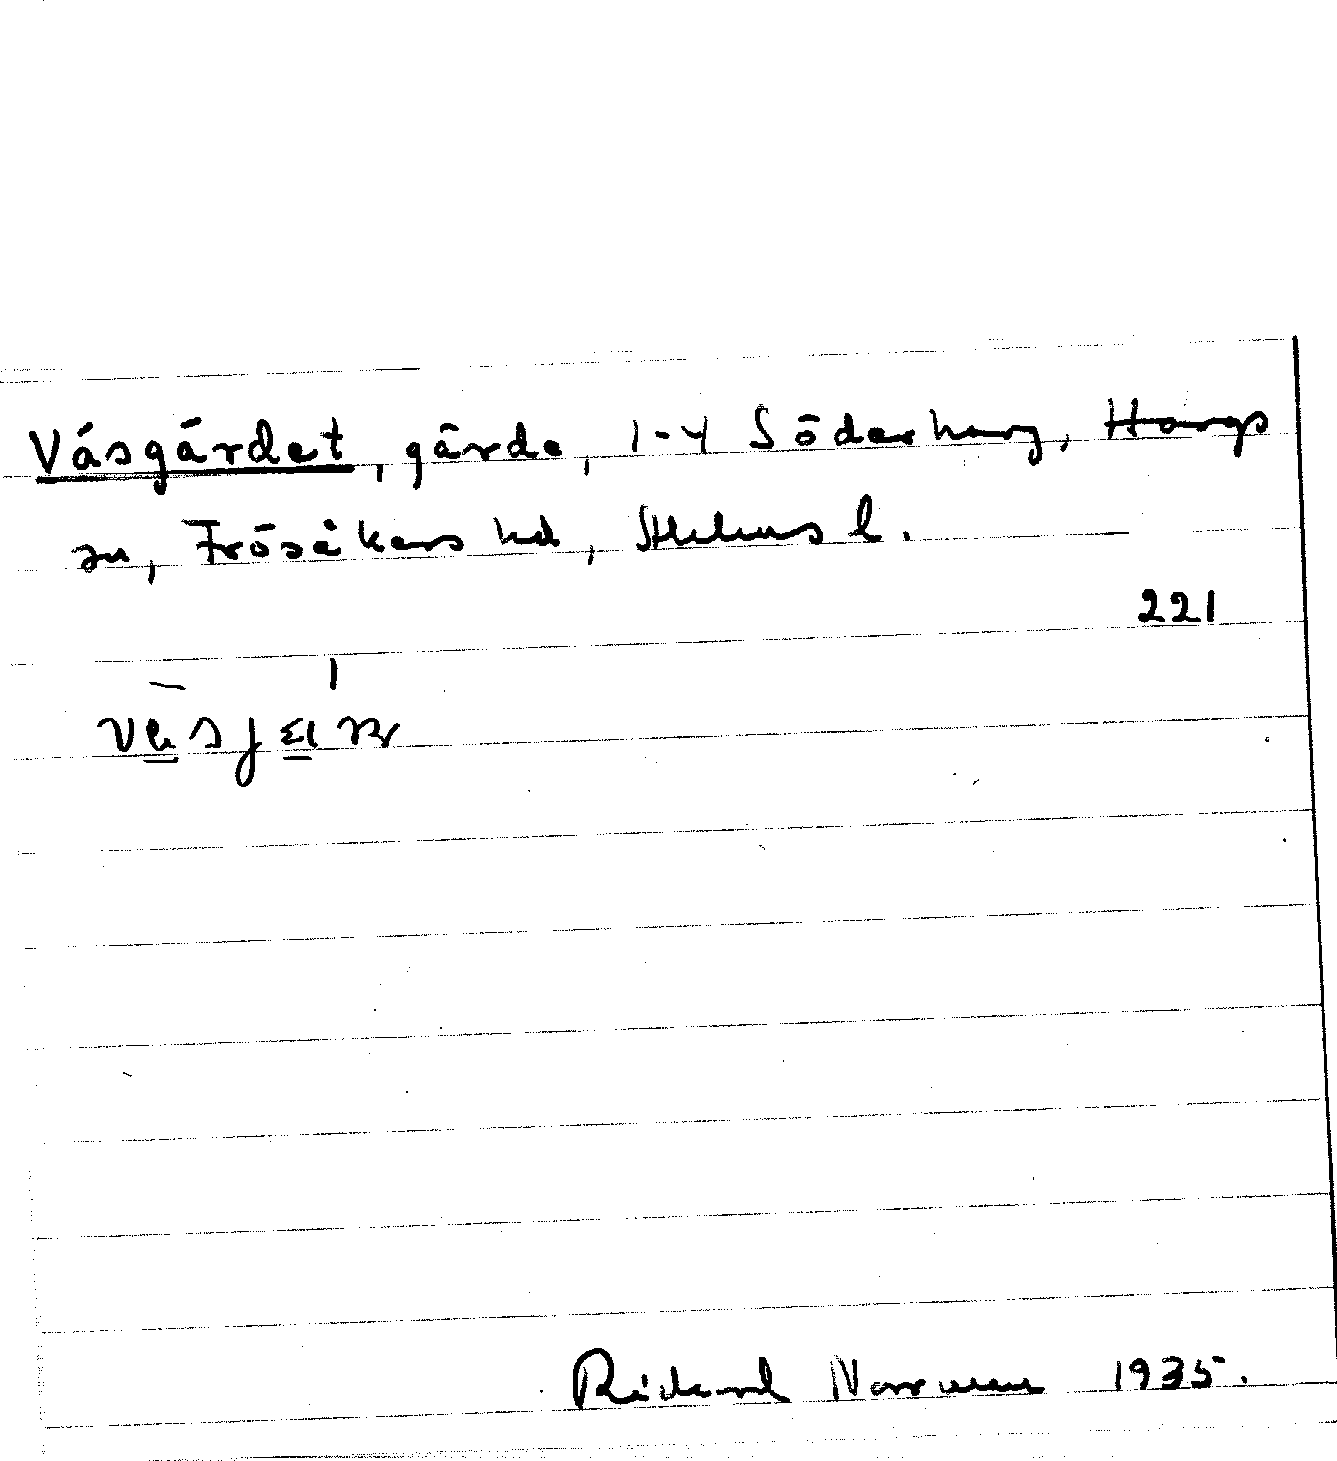 Våsgärdet, gärde, 1-4 Söderharg, Hargs
sn, Frösåkers hd, Sthlms l.
221
Rickard Norrman 1935.